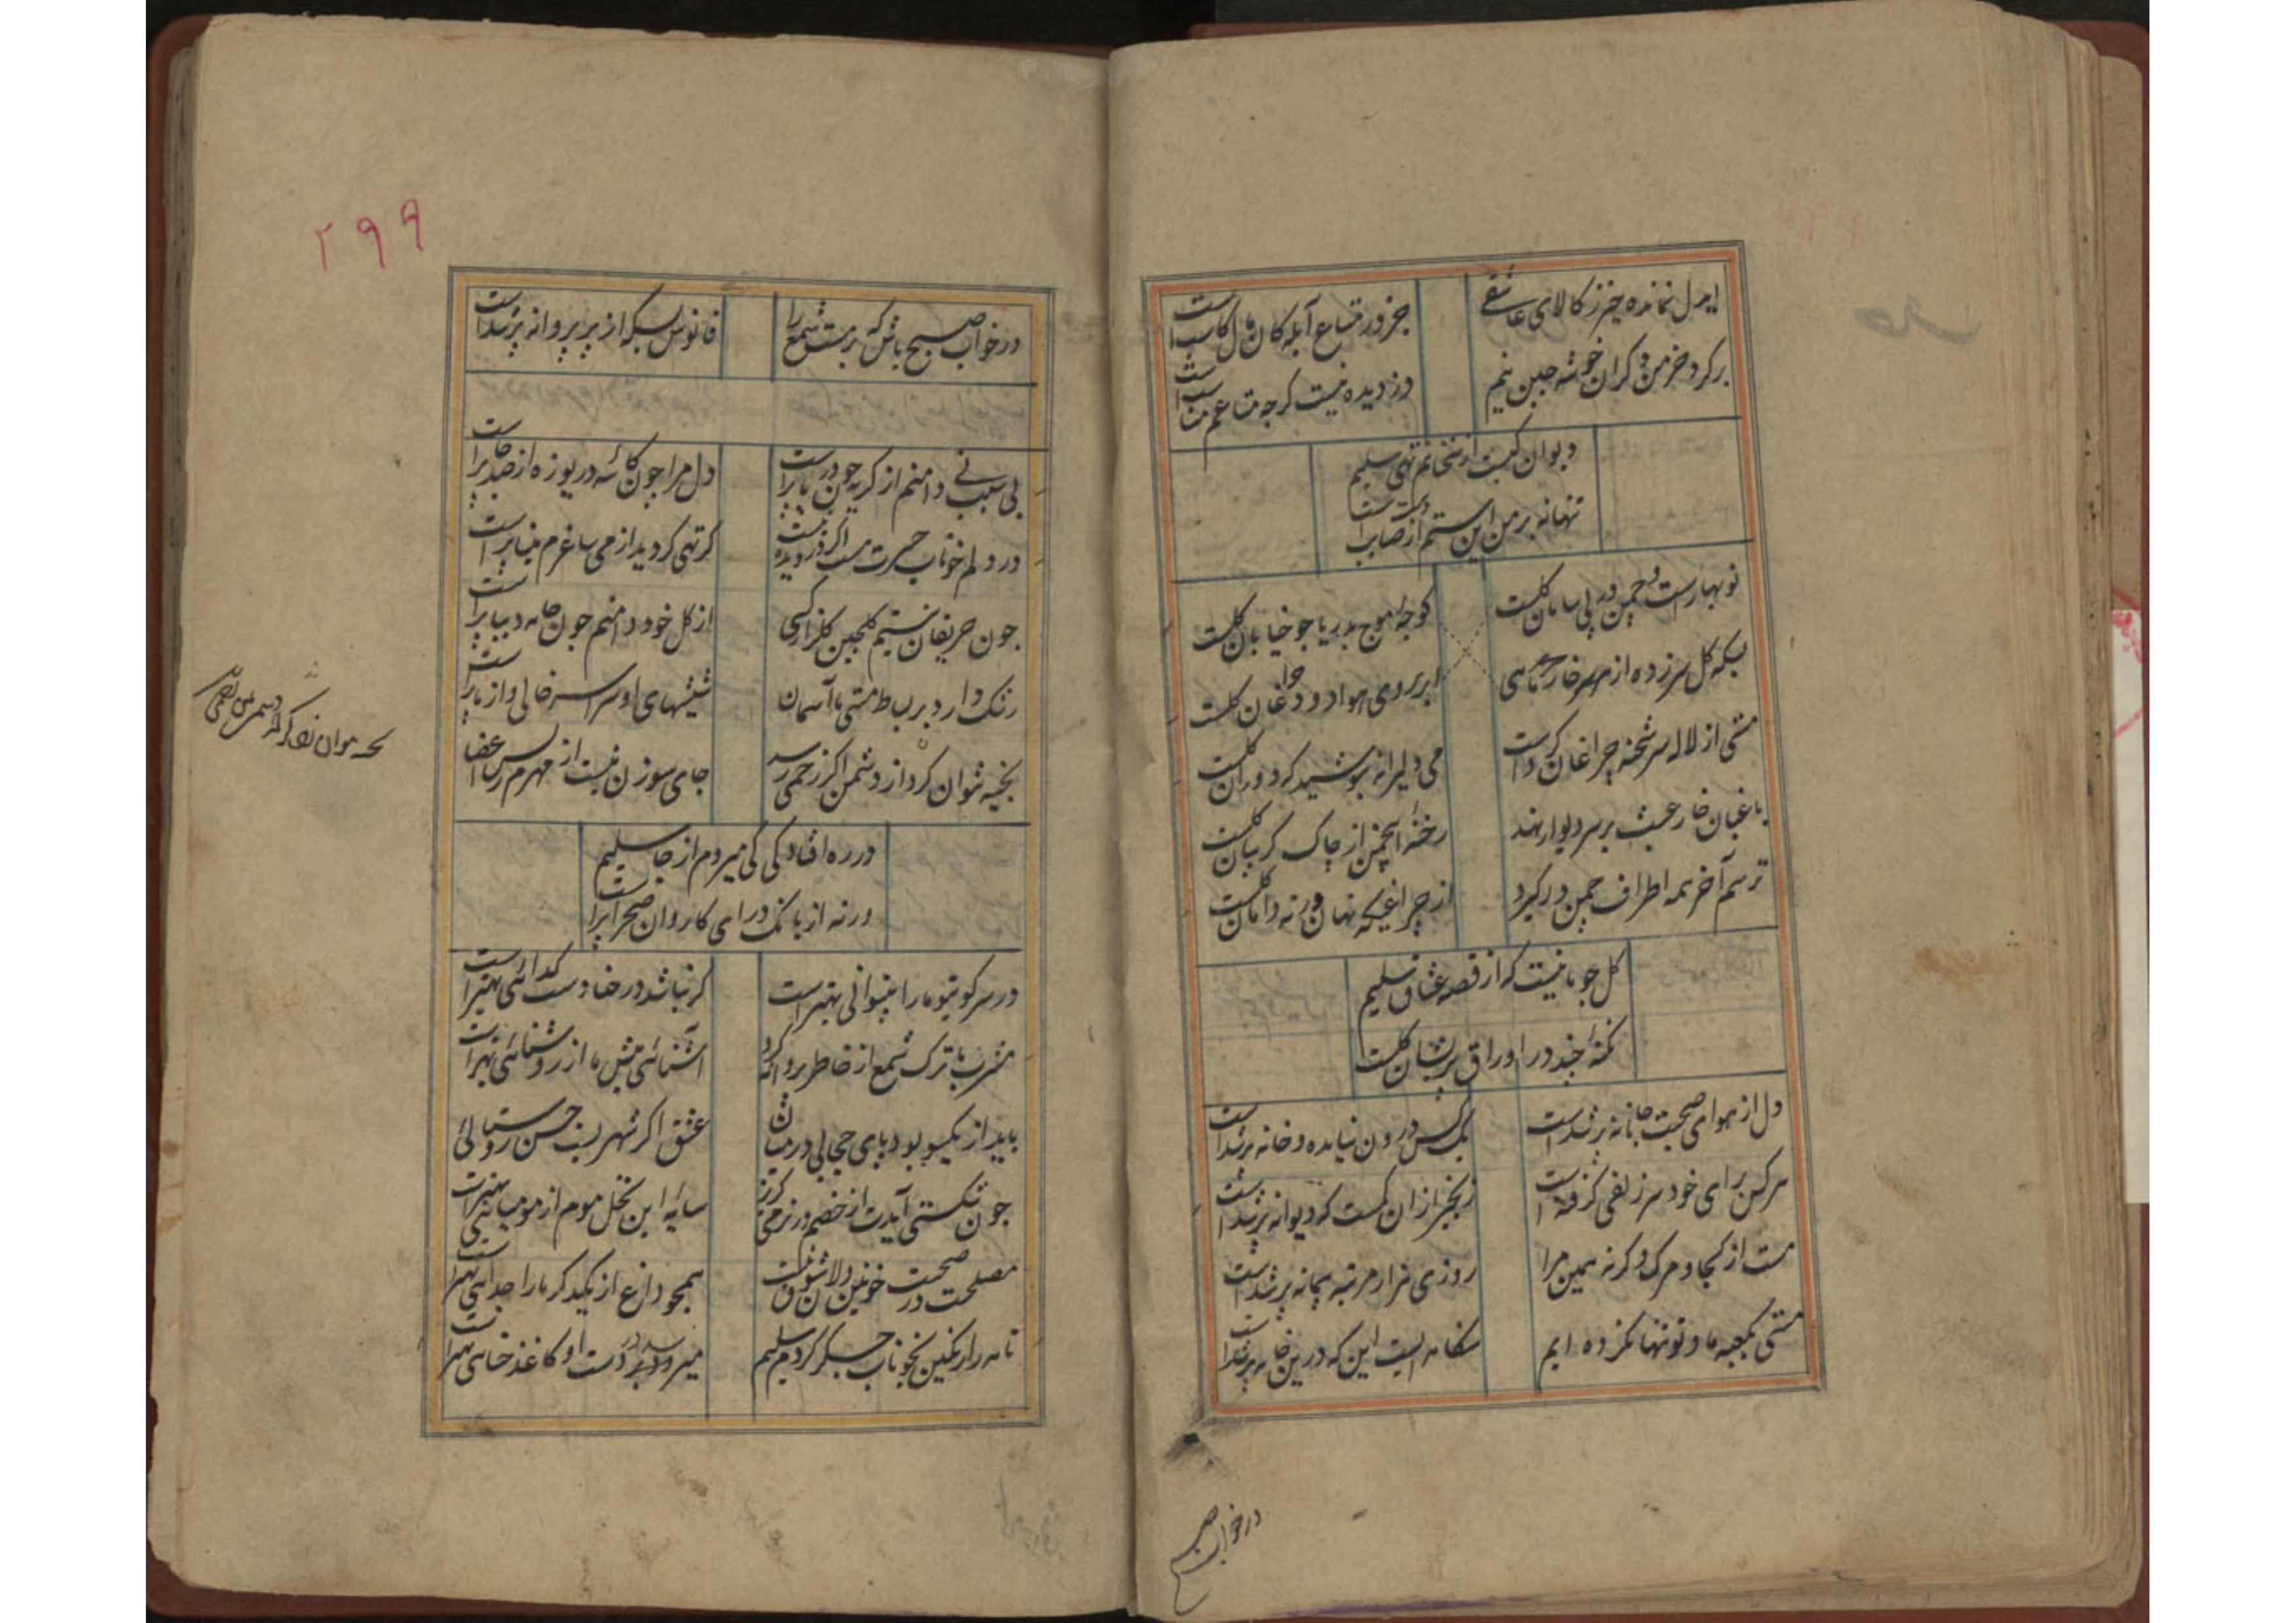 ایدل نمانده جز ز کالای عاشقی
جز در متاع آبله کان مال کاسب است
بر کرد خرمن دکران خوشه چین نیم
دزدیده نیست کرچه متاعم مناسب است
دیوان کیست از سخنانم تهی سلیم
تنها نه بر من این ستم از دست صائب است
نوبهارست و چمن در پی سامان کلست
کوچه موج بدریا چو خیابان کلست
بسکه کل سر زده از هر سر خار ماهی
ابر بر روی هوا دود چراغان کلست
مستی از لاله سر شحنه چراغان کردست
می دلیرانه بنوشید که دوران کلست
باغبان خار عبث بر سر دیوار نهد
رخنه این چمن از چاک کریبان کلست
ترسم آخر همه اطراف چمن درکیرد
از چراغی که نهان در ته دامان کلست
کل چو ما نیست که از قصه عشاق سلیم
نکته چند در اوراق پریشان کلست
دل از هوای صحبت جانانه پر شدست
یک کس درون نیامده و خانه پر شدست
هر کس برای خود سر زلفی کرفته است
زنجیر ازان کمست که دیوانه پر شدست
مست از کجا و مرک وکرنه همین مرا
روزی هزار مرتبه پیمانه پر شدست
مستی بکعبه ما و تو تنها نکرده ایم
سنکانه ایست این که درین خانه پر شدست
درخواب ص
۲۹۹
درخواب صبح باش که برمست شمع را
فانوس بسکه از پر پروانه پر شدست
بی سبب نی دامنم از کریه چون دریا پرست
دل مرا چون کاسه دریوزه از صد جا پرست
در دلم خوناب حسرت هست اکر در دیده نیست
کر تهی کردید از می ساغرم مینا پرست
چون حریفان نیستیم کلچین کلزار کسی
از کل خود دامنم چون جامه دیبا پرست
رنک دارد بر بساط مستی ما آسمان
شیشهای او سراسر خالی و از ما پرست
بخیه نتوان کرد از دشمن اکر زخمی رسد
جای سوزن نیست از مهرم بس اعضا
در ره افتادکی کی میروم از جا سلیم
ورنه از بانک درای کاروان صحرا پرست
در سر کو تیو ما را بینوائی بهتر است
کر نباشد در خنا دست کدائی بهتر است
مشرب ما ترک شمع از خاطر پروانه کرد
آشنائی پیش ما از روشنائی بهتر است
باید از یکسو بود پای حجابی در میان
عشق اکر شهریست حسن روستائی
چون شکستی آیدت از خصم در نرمی کریز
سایه این نخل موم از مومیائی بهتر است
مصلحت در صحبت خونین دلان شوق نیست
همچو داغ از یکدکر ما را جدائی بهتر است
نامه را رنکین بخوناب جسکر کردم سلیم
میرود بر دست او کاغذ حنائی بهتر است